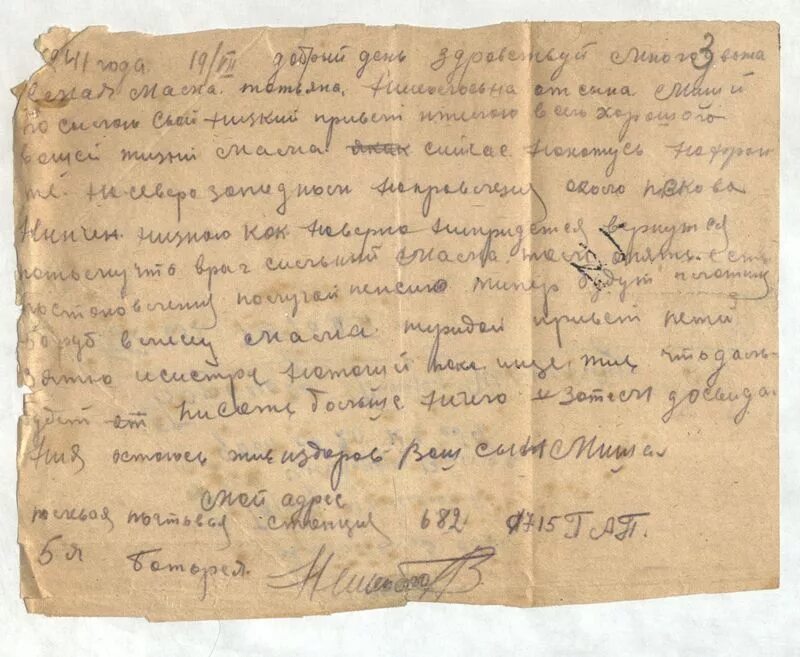 3
1941 года 19/VII добрий день здравствуй многоуважа
емая мама татьяна от сина миши
посилаю свой низкий привет и желаю всего хорошого
вашей жизни мама як сийчас нахотусь нафрон
те. на северо западном направления около пскова
жизною как наверно непридется вернутся
потомучто враг сильный мама
постоновления получай пенсию типер будут платить
100 руб вмесец мама передай привет пети
зятю и систре пока ище жив что даль
будет писать больше ничего и затем досвида
ния остаюсь жив издоров Ваш сын Миша
Мой адрес
почтовая станция 682 1715 ГАП.
5я батарея.